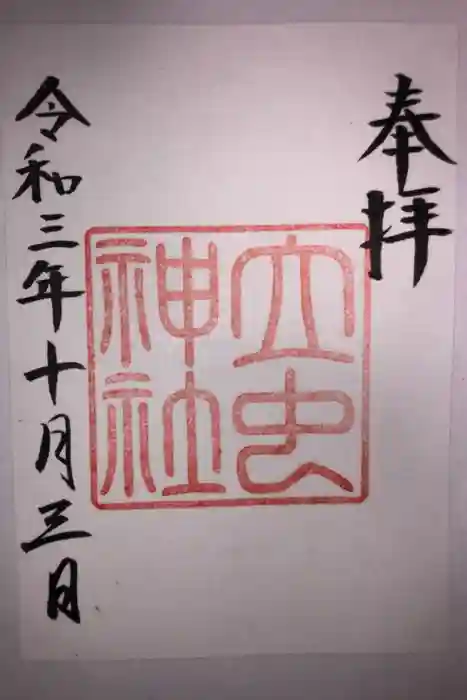 奉拝
立虫
神社
令和三年十月三日